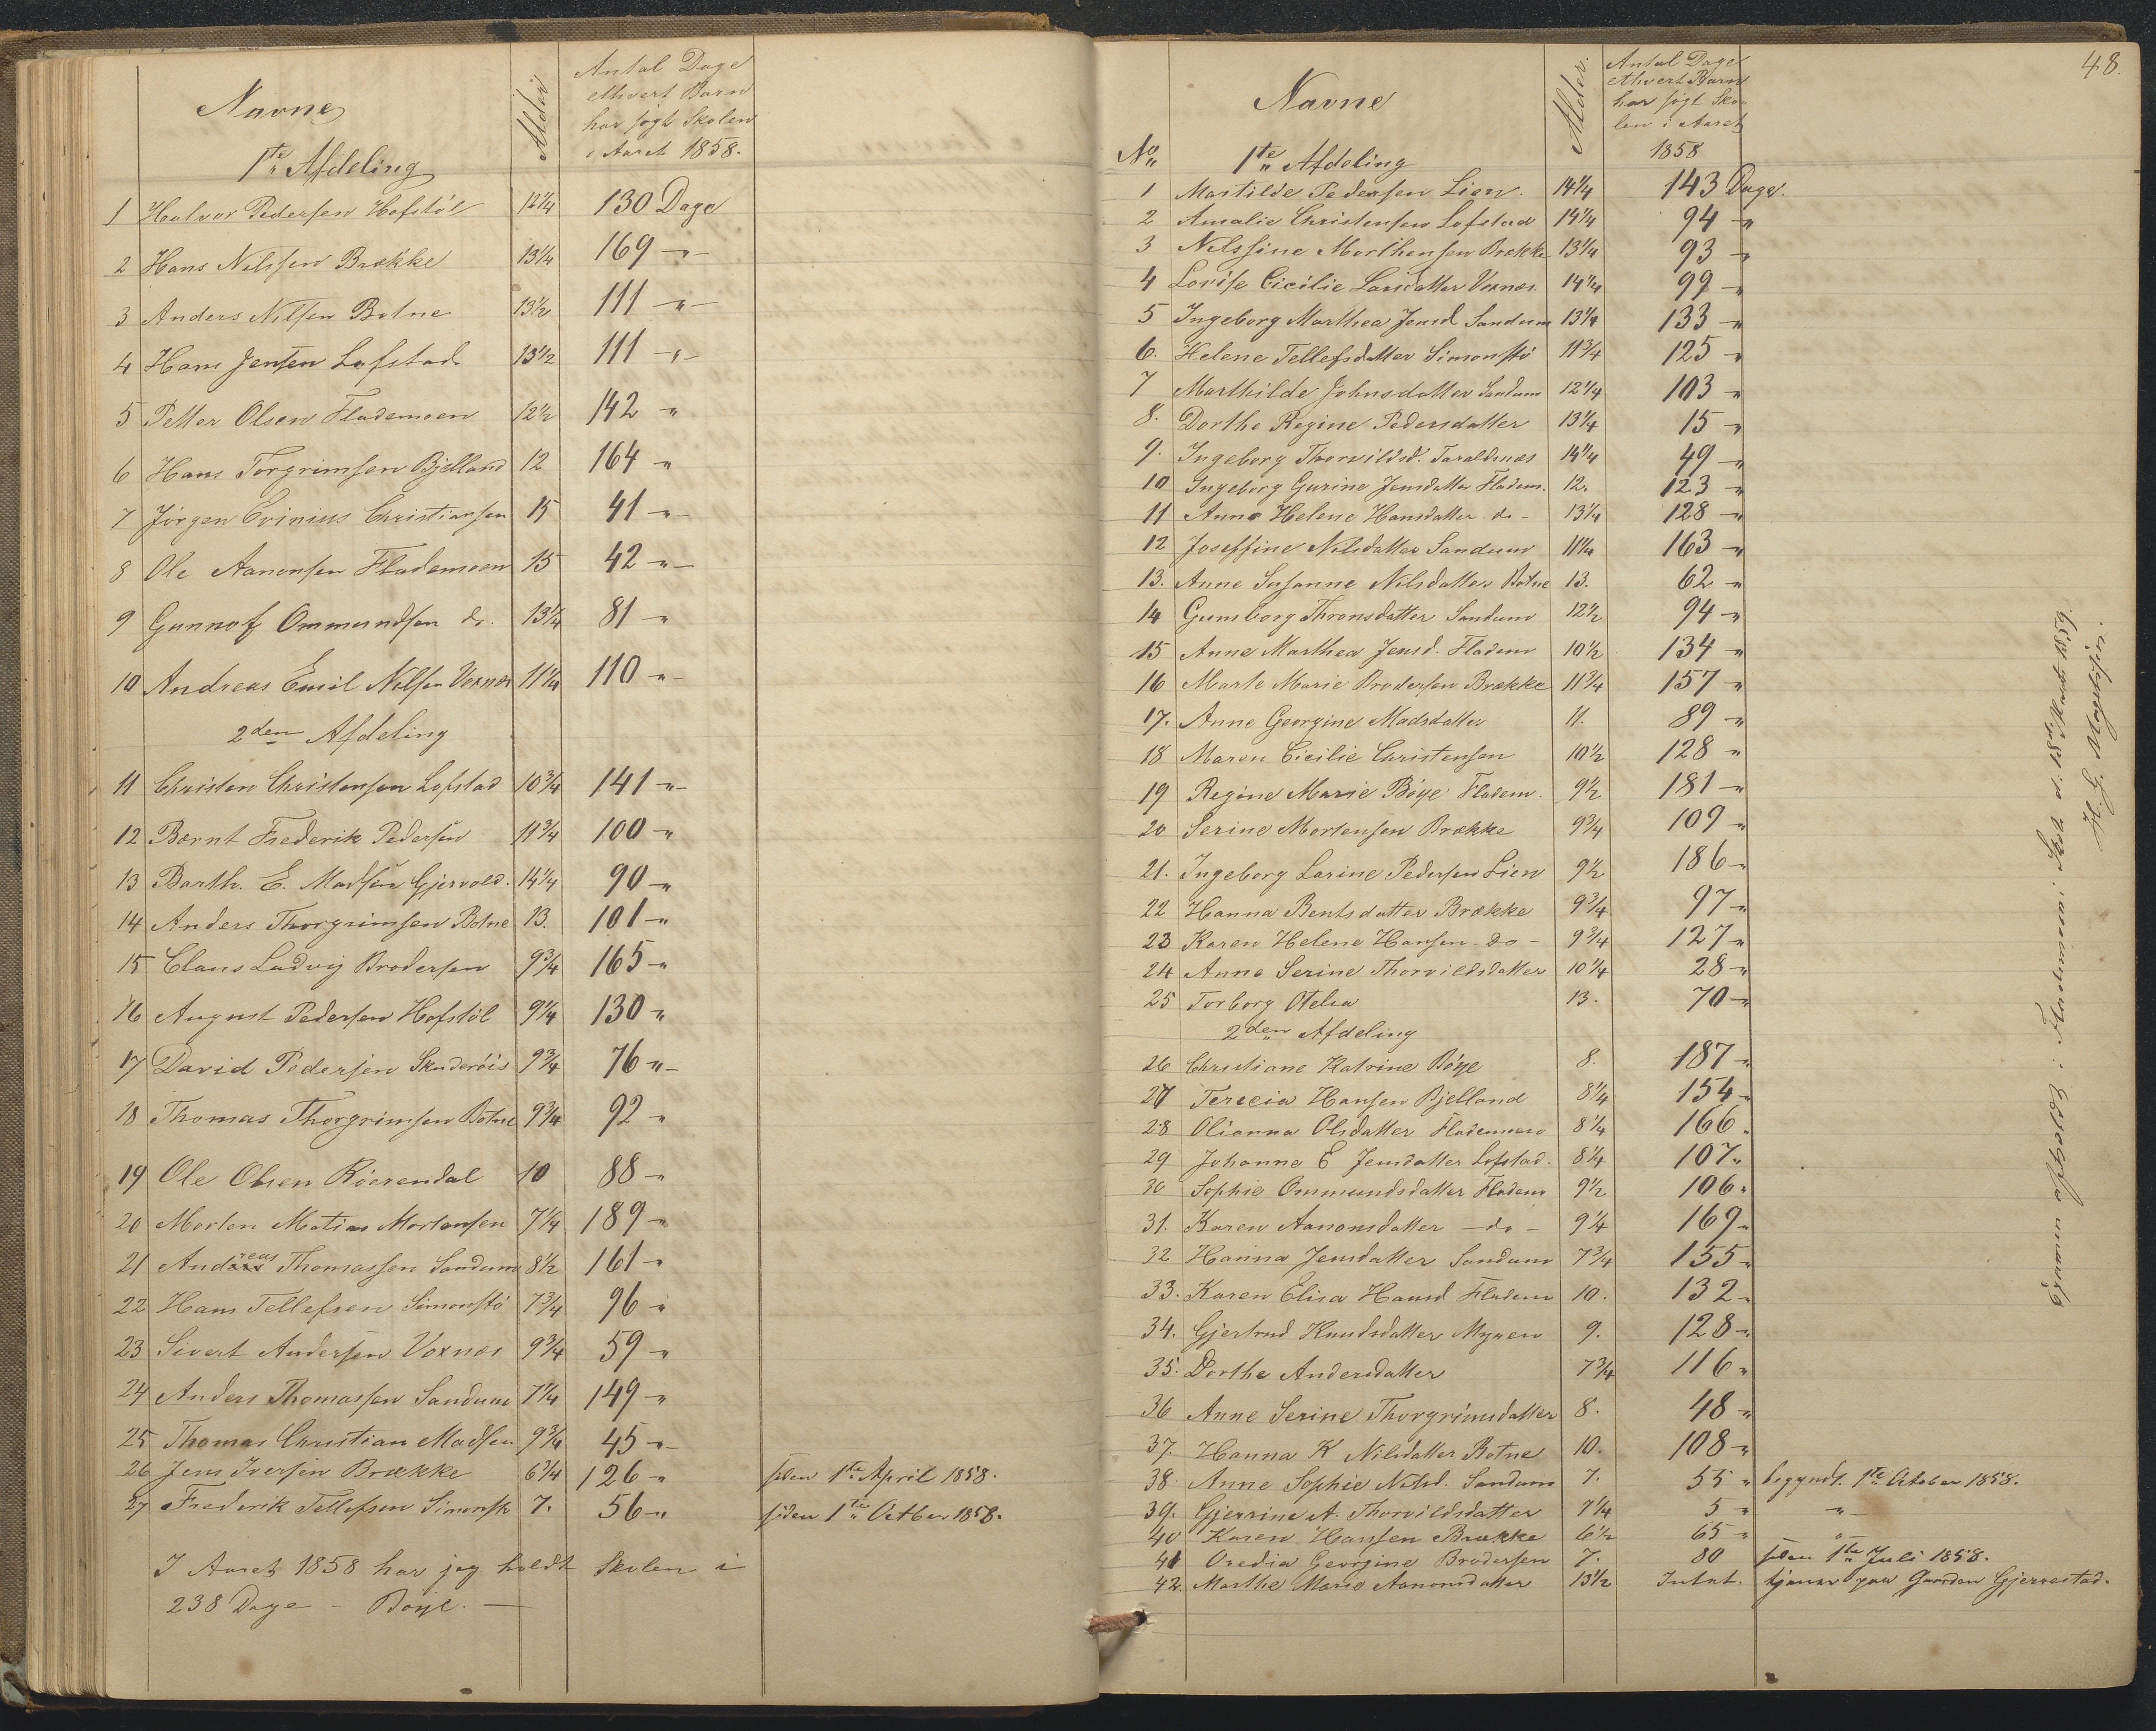 Navne
Alder
Antal Dage
ethvert Barn
har søgt Skolen
i Aaret 1858.
1te Afdeling
1 Halvor Pedersen Hofstöl 12 1/4 130 Dage
2 Hans Nilssen Brække 13 1/4 169 -"-
3 Anders Nilsen Botne 13 1/2 111 -"-
4 Hans Jensen Lofstad 13 1/2 111 -"-
5 Petter Olsen Flademoen 12 1/2 142 -"
6 Hans Torgrimsen Bjelland 12 164 -"
7 Jörgen Evinius Christiansen 15 41 -"-
8 Ole Aanonsen Flademoen 15 42 -"-
9 Gunnof Ommundsen do. 13 1/4 81 -"
10 Andreas Emil Nilsen Voxnæs 11 1/4 110 -"-
2den Afdeling
11 Christen Christensen Lofstad 10 3/4 141 -"-
12 Bernt Frederik Pedersen 11 3/4 100 -"
13 Barth. E. Madsen Gjervold. 14 1/4 90 -"
14 Anders Thorgrimsen Botne 13. 101 -"
15 Claus Ludvig Brodersen 9 3/4 165 -"
16 August Pedersen Hofstöl 9 1/4 130 -"
17 David Pedersen Skuderöis 9 3/4 76 "-
18 Thomas Thorgrimsen Botne 9 3/4 92 -"
19 Ole Olsen Röerendal 10 88 -"
20 Morten Matias Mortensen 7 1/4 189 -"
21 Andreas Thomassen Sandum 8 1/2 161 -"
22 Hans Tellefsen Simonstö 7 3/4 96 -"
23 Sivert Andersen Voxnæs 9 3/4 59 -"
24 Anders Thomassen Sandum 7 1/4 149 -"
25 Thomas Christian Madsen 9 3/4 45 -"-
26 Jens Iversen Brække 6 1/4 126 -" siden 1te April 1858.
27 Frederik Tellefsen Simonstö 7. 56 -" siden 1te Octber 1858.
I Aaret 1858 har jeg holdt Skolen i
238 Dage - Böye. -
48.
No
Navne
Alder.
Antal Dage
ethvert Barn
har søgt Sko-
len i Aaret
1858
1te Afdeling
1 Mastilde Pedersen Lien. 14 1/4 143 Dage.
2 Amalie Christensen Lofstad 14 1/4 94 -"
3 Nilssine Morthensen Brække 13 1/4 93 -"
4 Lovise Cicilie Larsdatter Voxnæs. 14 1/4 99 -"
5 Ingeborg Marthea Jensd. Sandum 13 1/4 133 -"
6. Helene Tellefsdatter Simonstö 11 3/4 125 -"
7 Marthilde Johnsdatter Sandum 12 1/4 103 -"
8. Dorthe Regine Pedersdatter 13 1/4 15 -"
9. Ingeborg Thorvildsd. Taraldnæs 14 1/4 49 -"
10 Ingeborg Gurine Jensdatter Fladem. 12. 123 -"
11 Anne Helene Hansdatter do - 13 1/4 128 -"
12 Joseffine Nilsdatter Sandum 11 1/4 163 -"
13. Anne Susanne Nilsdatter Botne 13. 62 -"
14 Gumborg Thronsdatter Sandum 12 1/2 94 -"
15 Anne Marthea Jensd. Fladem 10 1/2 134 -"
16 Marte Marie Brodersen Brække 11 3/4 157 -"
17. Anne Georgine Madsdatter 11. 89 -"
18 Maren Cicilie Christensen 10 1/2 128 "
19 Regine Marie Böye Fladem. 9 1/2 181 -"
20 Serine Mortensen Brække 9 3/4 109 -"
21. Ingeborg Larine Pedersen Lien 9 1/2 186 -"
22 Hanna Bentsdatter Brække 9 3/4 97 -"
23 Karen Helene Hansen - do - 9 3/4 127 -"
24 Anne Serine Thorvildsdatter 10 1/4 28 -"
25 Torborg Otelia 13. 70 -"
2den Afdeling
26 Christiane Katrine Böye 8. 187 -"
27 Terecia Hansen Bjelland 8 1/4 154 -"
28 Olianna Olsdatter Flademoen 8 1/4 166 "
29 Johanne E Jensdatter Lofstad. 8 1/4 107 "
30 Sophie Ommundsdatter Fladem 9 1/2 106 "
31. Karen Aanonsdatter - do - 9 1/4 169 "
32 Hanna Jensdatter Sandum 7 3/4 155 -"
33. Karen Elisa Hansd Fladem 10. 132 -"
34. Gjertrud Knudsdatter Myren 9. 128 -"
35. Dorthe Andersdatter 7 3/4 116 -"
36 Anne Serine Thorgrimsdatter 8. 48 -"
37. Hanna K Nilsdatter Botne 10. 108 -"
38. Anne Sophie Nilsd. Sandum 7. 55 " begyndt 1te October 1858.
39. Gjerrine A. Thorvildsdatter 7 1/4 5 " -"-
40 Karen Hansen Brække 6 1/2 65 " "
41 Oredia Georgine Brodersen 7. 80 siden 1te Juli 1858.
42. Marthe Marie Aanonsdatter 13 1/2 Intet. tjener paa Gaarden Gjerrestad.
Examen afholdt i Flademoens Skole d. 18de Marts 1859.
H. G. Magelssen.